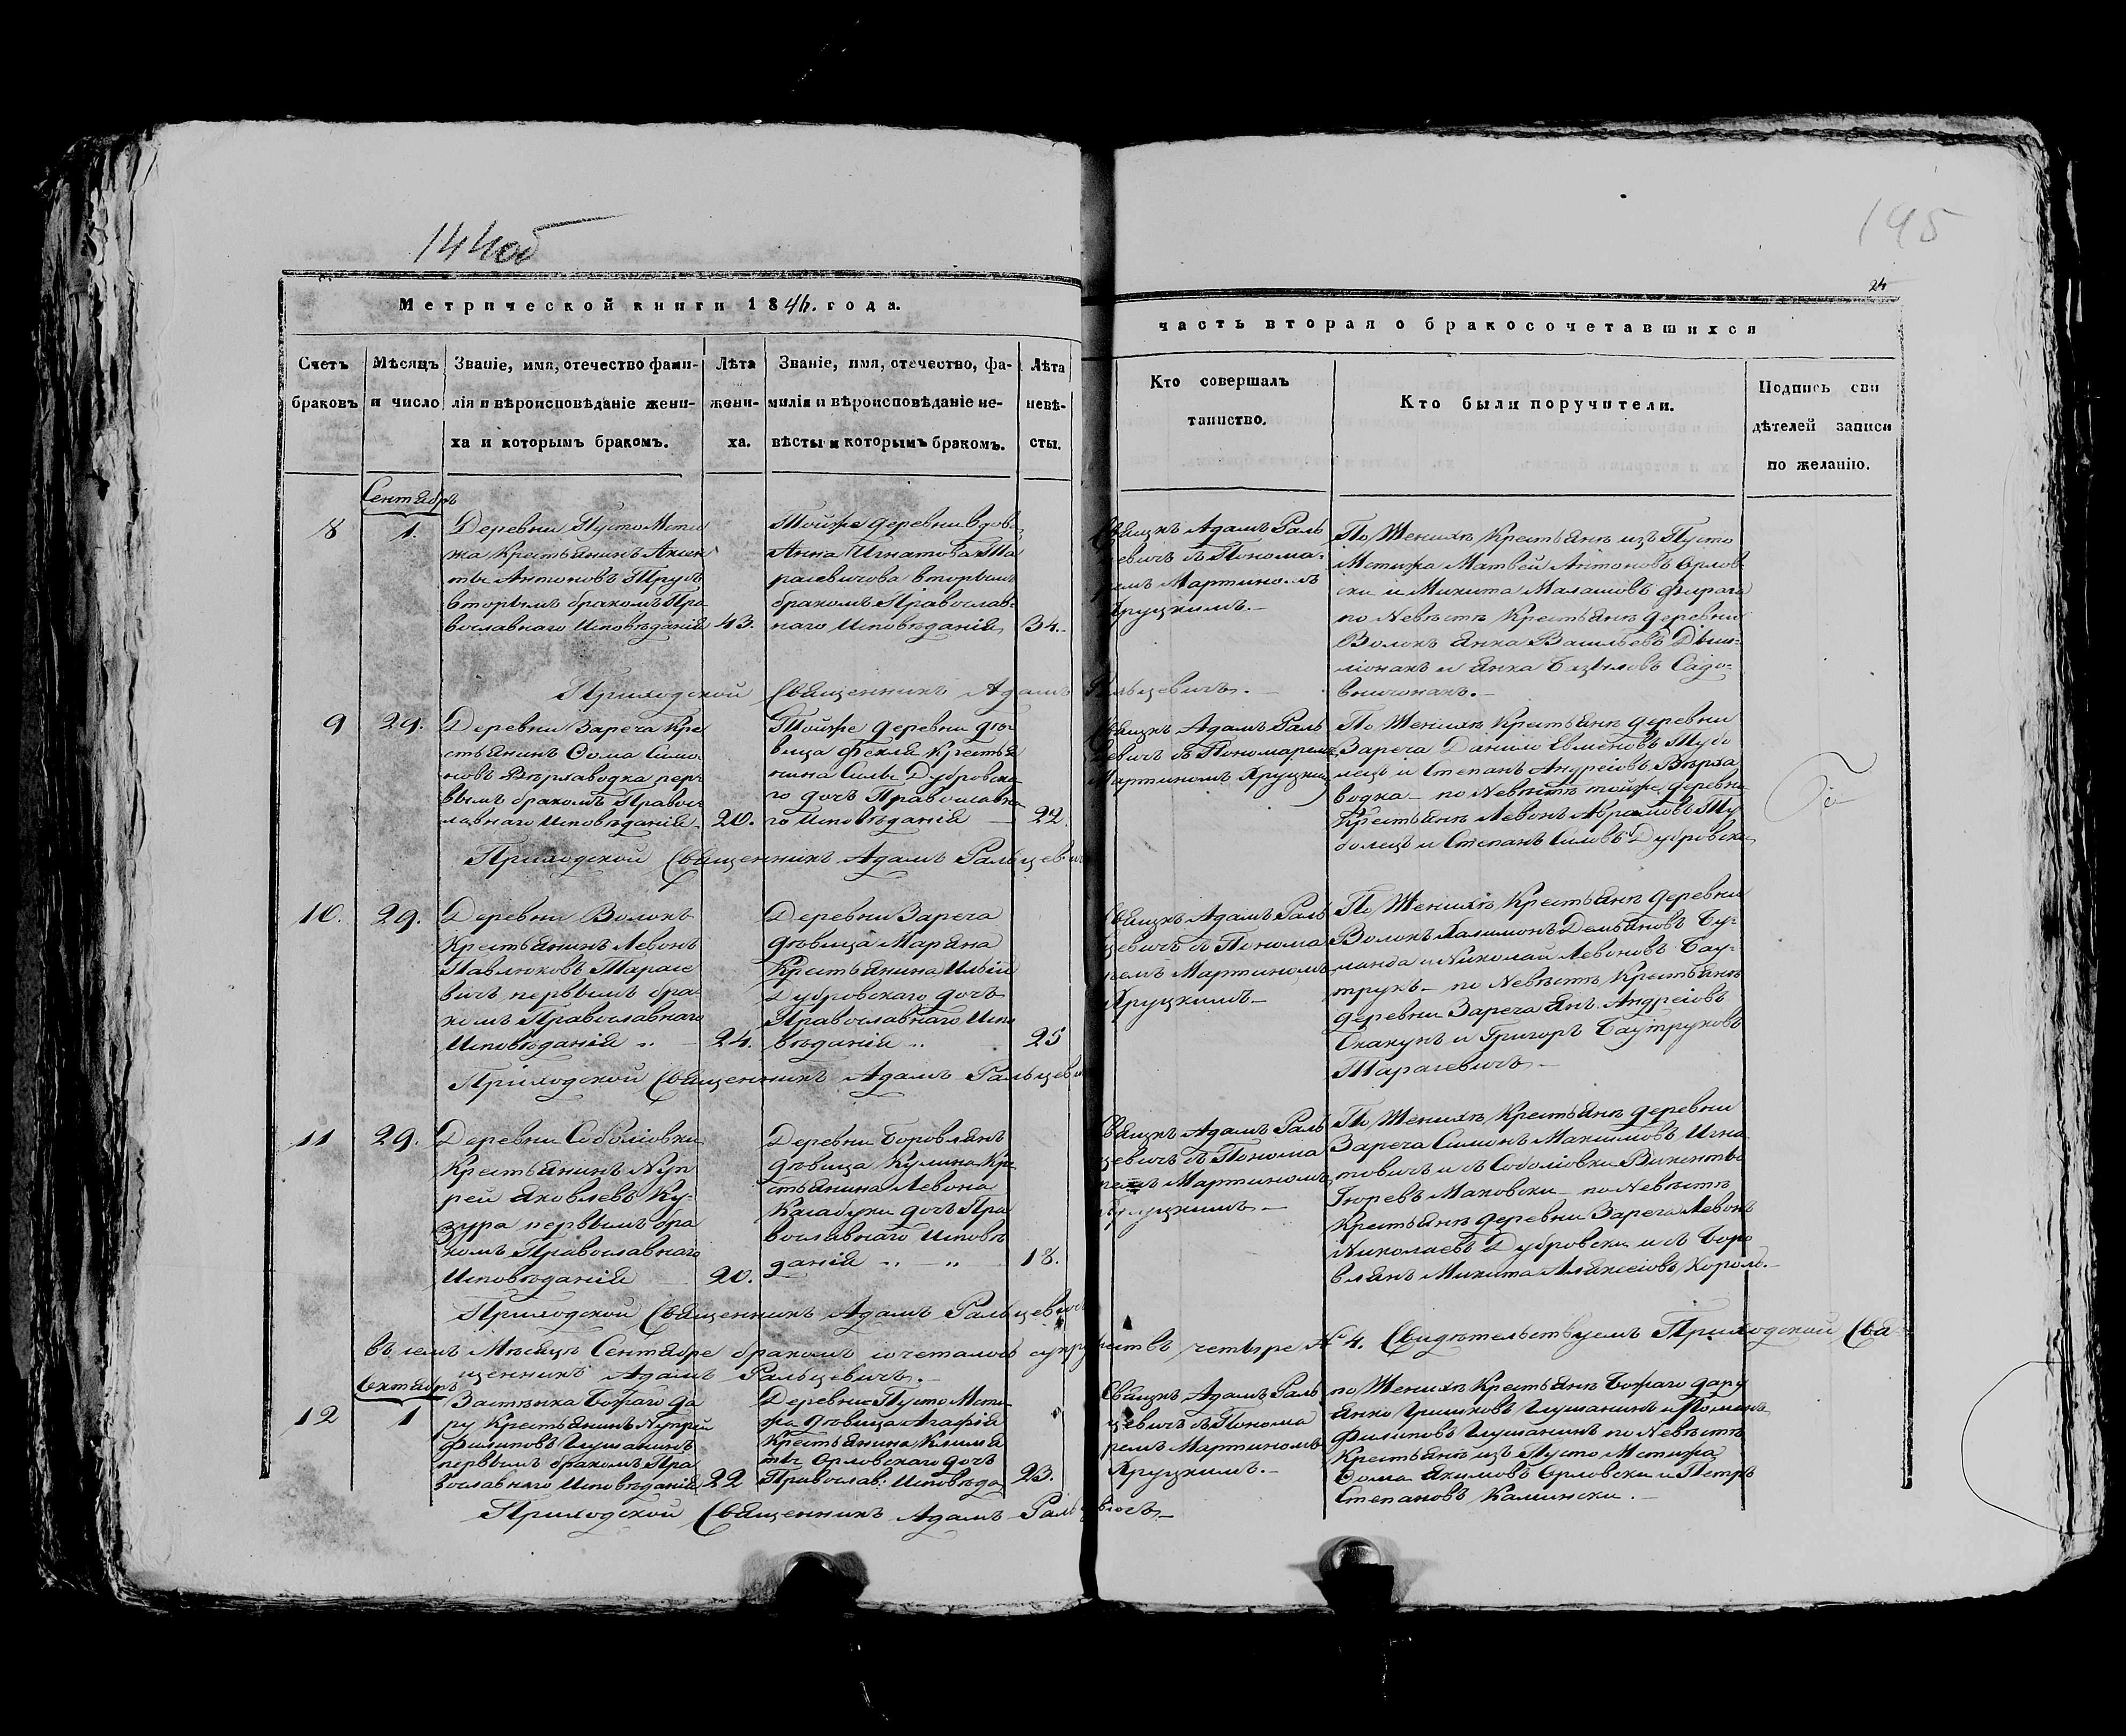 144об
195
24
Метрической книги 1844. года.
часть вторая о бракосочетавшихся
Счетъ браковъ
Мѣсяцъ и число
Званіе, имя, отечество фамилія и вѣроисповѣданіе жениха и которымъ бракомъ.
Лѣта жениха.
Званіе, имя, отечество, фамилія и вѣроисповѣданіе невѣсты и которымъ бракомъ.
Лѣта невѣсты.
Кто совершалъ таинство.
Кто были поручители.
Подпись свидѣтелей записи по желанію.
Сентябръ
8
1.
Деревни Пусто Мсти
жа Крестьянинъ Акин
ты Антоновъ Трубъ
вторымъ бракомъ Пра
вославнаго Исповѣданія
43.
Тойже деревни вдов:
Анна Игнатова Та
расевичова вторымъ
бракомъ Православ:
наго Исповѣданія
34.
Свящнъ Адамъ Раль
цевичъ съ Понома:
ремъ Мартиномъ
Хруцкимъ.
По Женихѣ Крестьянѣ изъ Пусто
Мстижа Матвей Антоновъ Орлов
ски и Микита Малашовъ Фираго
по Невѣстѣ Крестьянѣ деревни
Волокъ Янка Васильевъ
и Янка Садо:
вничонакъ.
Приходской Священникъ Адамъ Ральцевичъ.
9
29.
Деревни Зареча Кре
стьянинъ Ѳома Симо
новъ Вѣрлаводка пер:
вымъ бракомъ Правос
лавнаго Исповѣданія
20.
Тойже деревни дѣ:
вица Фекля Крестья
нина Силы Дубровска
го дочъ Православна
го Исповѣданія
22.
Свящнъ Адамъ Раль
цевичъ съ Пономаремъ
Мартиномъ Хруцким
По Женихѣ Крестьянѣ деревни
Зареча Данило Евменовъ Шубо
лецъ и Степанъ Андреіовъ Вѣрла
водка — по Невѣстѣ тойже деревни
Крестьянѣ Левонъ Абрамовъ Шу
болецъ и Степанъ Силовъ Дубровски
Приходской Священникъ Адамъ Ральцевичъ
10.
29.
Деревни Волокъ
Крестьянинъ Левонъ
Павлюковъ Тарасе
вичъ первымъ бра
комъ Православнаго
Исповѣданія
24.
Деревни Зареча
дѣвица Маряна
Крестьянина Ильи
Дубровскаго дочъ
Православнаго Испо
вѣданія
25
Свящнъ Адамъ Раль
цевичъ съ Понома
ремъ Мартиномъ
Хруцкимъ
По Женихѣ Крестьянѣ деревни
Волокъ Халимонъ Демьяновъ Бу:
ланда и Николай Левоновъ Бау:
трукъ — по Невѣстѣ Крестьянѣ
деревни Зареча Янъ Андреіовъ
Скакунъ и Григоръ Баутруковъ
Тарасевичъ
Приходской Священникъ Адамъ Ральцевичъ
11
29.
Деревни Соболіовки
Крестьянинъ Нуп
рей Яковлевъ Ку:
зура первымъ бра
комъ Православнаго
Исповѣданія
20.
Деревни Боровлянъ
дѣвица Кулина Кре
стьянина Левона
Касабуки дочъ Пра
вославнаго Исповѣ
данія
18.
Свящнъ Адамъ Раль
цевичъ съ Понома
ремъ Мартиномъ
Хруцкимъ
По Женихѣ Крестьянѣ деревни
Зареча Симонъ Максимовъ Игна
товичъ и съ Соболіовки Викентьи
Гюревъ Маковски — по Невѣстѣ
Крестьянѣ деревни Зареча Левонъ
Николаевъ Дубровски и съ Боро
влянъ Микита Аляксеіовъ Король.
Приходской Священникъ Адамъ Ральцевичъ
въ семъ Мѣсяцѣ Сентябре бракомъ сочеталось супружествъ четыре № 4. Свидѣтельствуемъ Приходской Свя
щенникъ Адамъ Ральцевичъ.
Октябръ
12
1
Застѣнка Божаго да
ру Крестьянинъ Нупрей
Филиповъ Глушанинъ
первымъ бракомъ Пра
вославнаго Исповѣданія
22
Деревни Пусто Мсти
жа дѣвица Агафія
Крестьянина Климя
ты Орловскаго дочъ
Православ: Исповѣда
23.
Свящнъ Адамъ Раль
цевичъ съ Понома
ремъ Мартиномъ
Хруцкимъ.
по Женихѣ Крестьянѣ Божаго дару
Янко Гришковъ Глушанинъ и Романъ
Филиповъ Глушанинъ по Невѣстѣ
Крестьянѣ изъ Пусто Мстижа
Ѳома Якимовъ Орловски и Петръ
Степановъ Камински.
Приходской Священникъ Адамъ Ральцевичъ